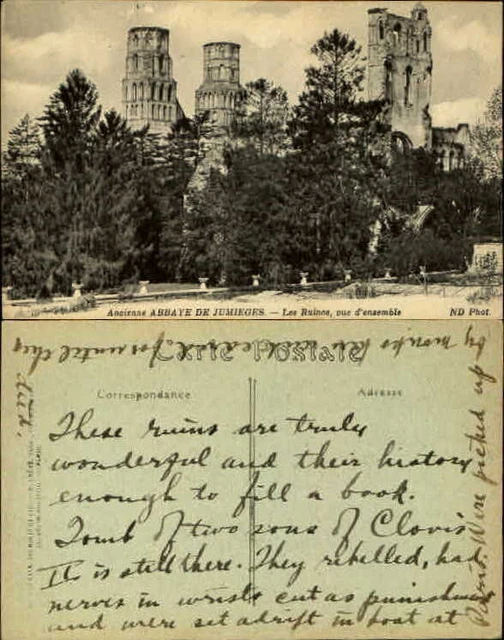 Ancienne ABBAYE DE JUMIEGES. — Les Ruines, vue d'ensemble
ND Phot.
Carte Postale
Correspondance
Adresse
These ruins are truly
wonderful and their history
enough to fill a book.
Tomb of two sons of Clovis
II is still there. They rebelled, had
nerves in wrists cut as punishment
and were set adrift in boat at
Were picked up
by monks
for until they
died.